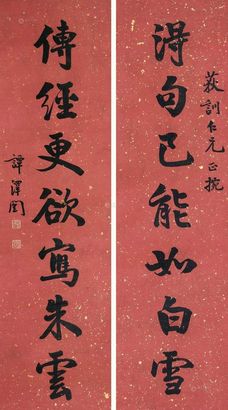 荻訓仁兄正捥
得句已能如白雪
傳經更欲寫朱雲
譚澤闓